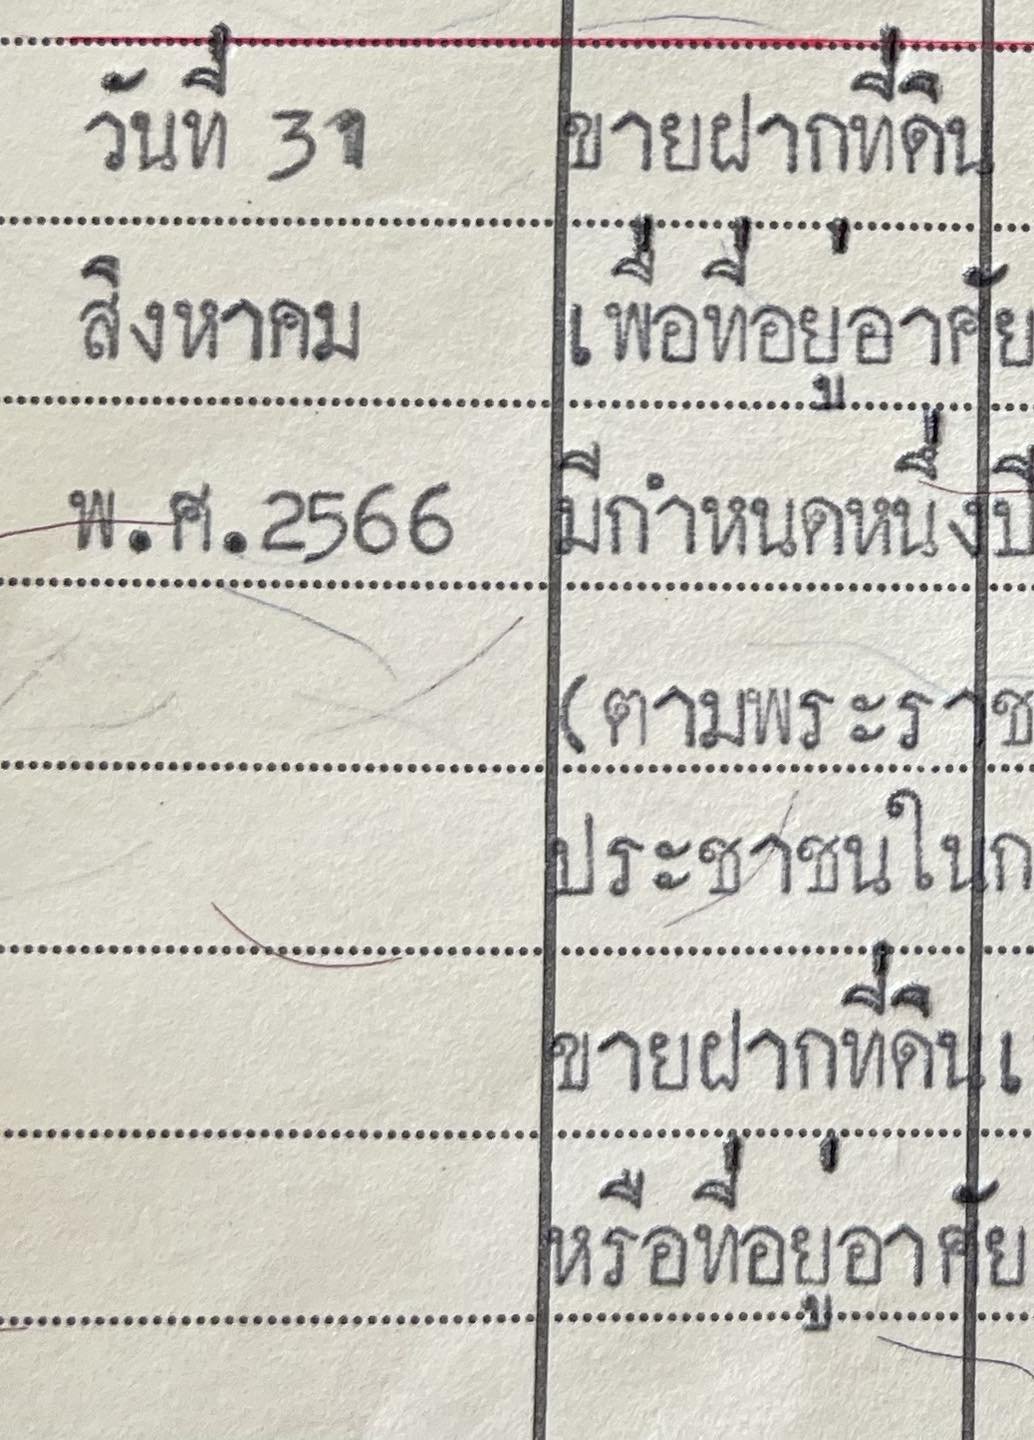 วันที่ 31
สิงหาคม
พ.ศ.2566
ขายฝากที่ดิน
เพื่อที่อยู่อาศัย
มีกำหนดหนึ่งปี
(ตามพระราช
ประชาชนในก
ขายฝากที่ดินเ
หรือที่อยู่อาศัย